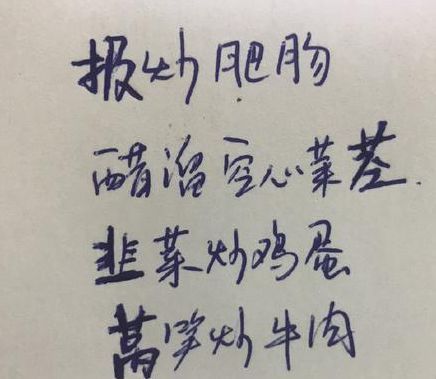 报炒肥肠
醋溜空心菜茎.
韭菜炒鸡蛋
莴笋炒牛肉